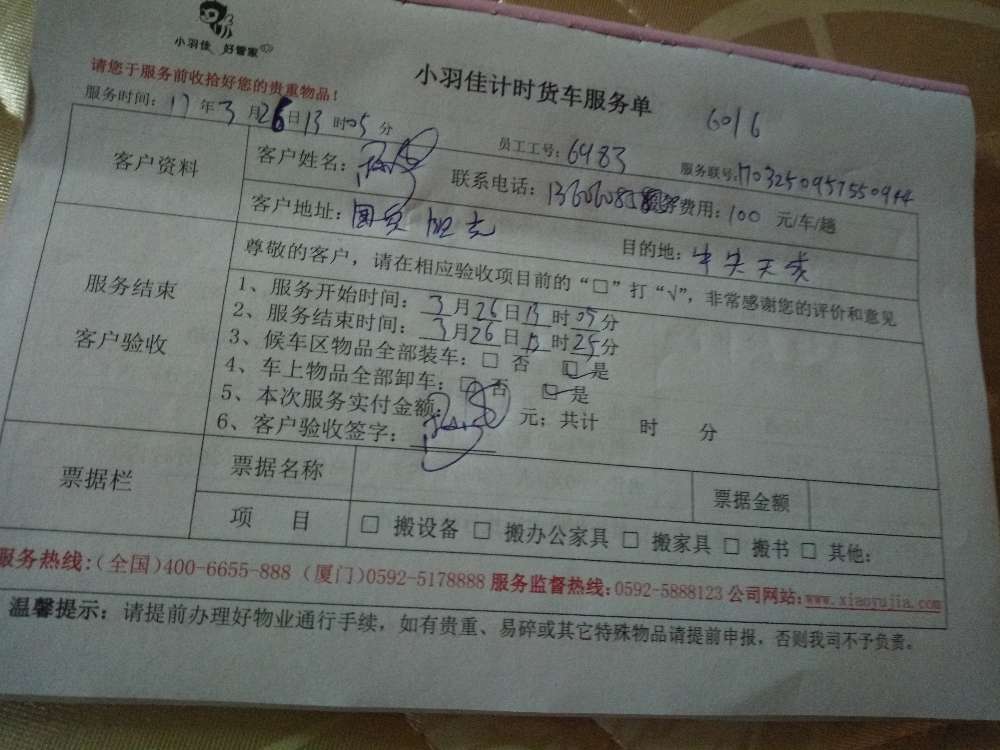 小羽佳 好管家
小羽佳计时货车服务单
6016
请您于服务前收拾好您的贵重物品！
服务时间：17年3月26日13时05分 员工工号：6983 服务联号：
客户资料
客户姓名： 联系电话： 费用：100 元/车/趟
客户地址：国贸 目的地：中央天成
服务结束
客户验收
尊敬的客户，请在相应验收项目前的“□”打“√”，非常感谢您的评价和意见
1、服务开始时间：3月26日13时05分
2、服务结束时间：3月26日13时25分
3、候车区物品全部装车：□ 否 ☑ 是
4、车上物品全部卸车：□ 否 ☑ 是
5、本次服务实付金额： 元；共计 时 分
6、客户验收签字：
票据栏
票据名称 票据金额
项 目 □ 搬设备 □ 搬办公家具 □ 搬家具 □ 搬书 □ 其他：
服务热线：（全国）400-6655-888（厦门）0592-5178888 服务监督热线：0592-5888123 公司网站：www.xiaoyujia.com
温馨提示：请提前办理好物业通行手续，如有贵重、易碎或其它特殊物品请提前申报，否则我司不予负责。